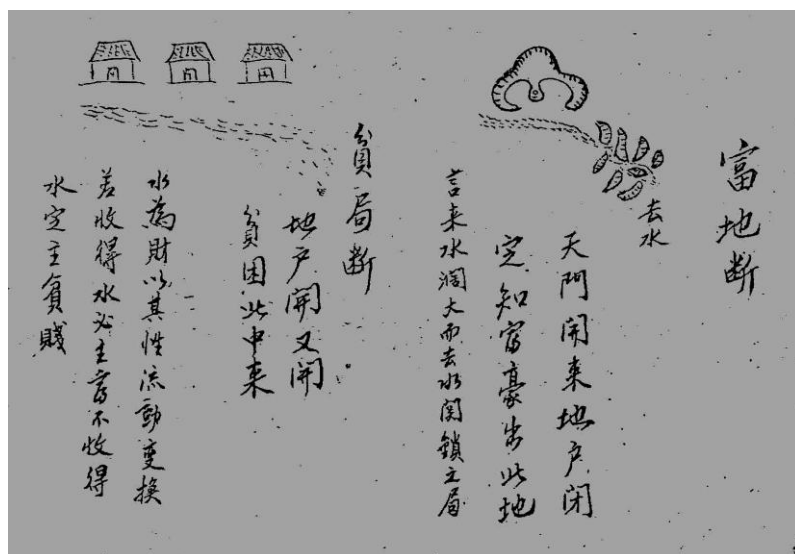 富地断
去水
天門開来地户闭
定知富豪出此地
言来水濶大而去水関鎖之局
貧局断
地户開又開
貧困此中来
水為財以其性流動变换
若收得水必主富不收得
水定主貧賤